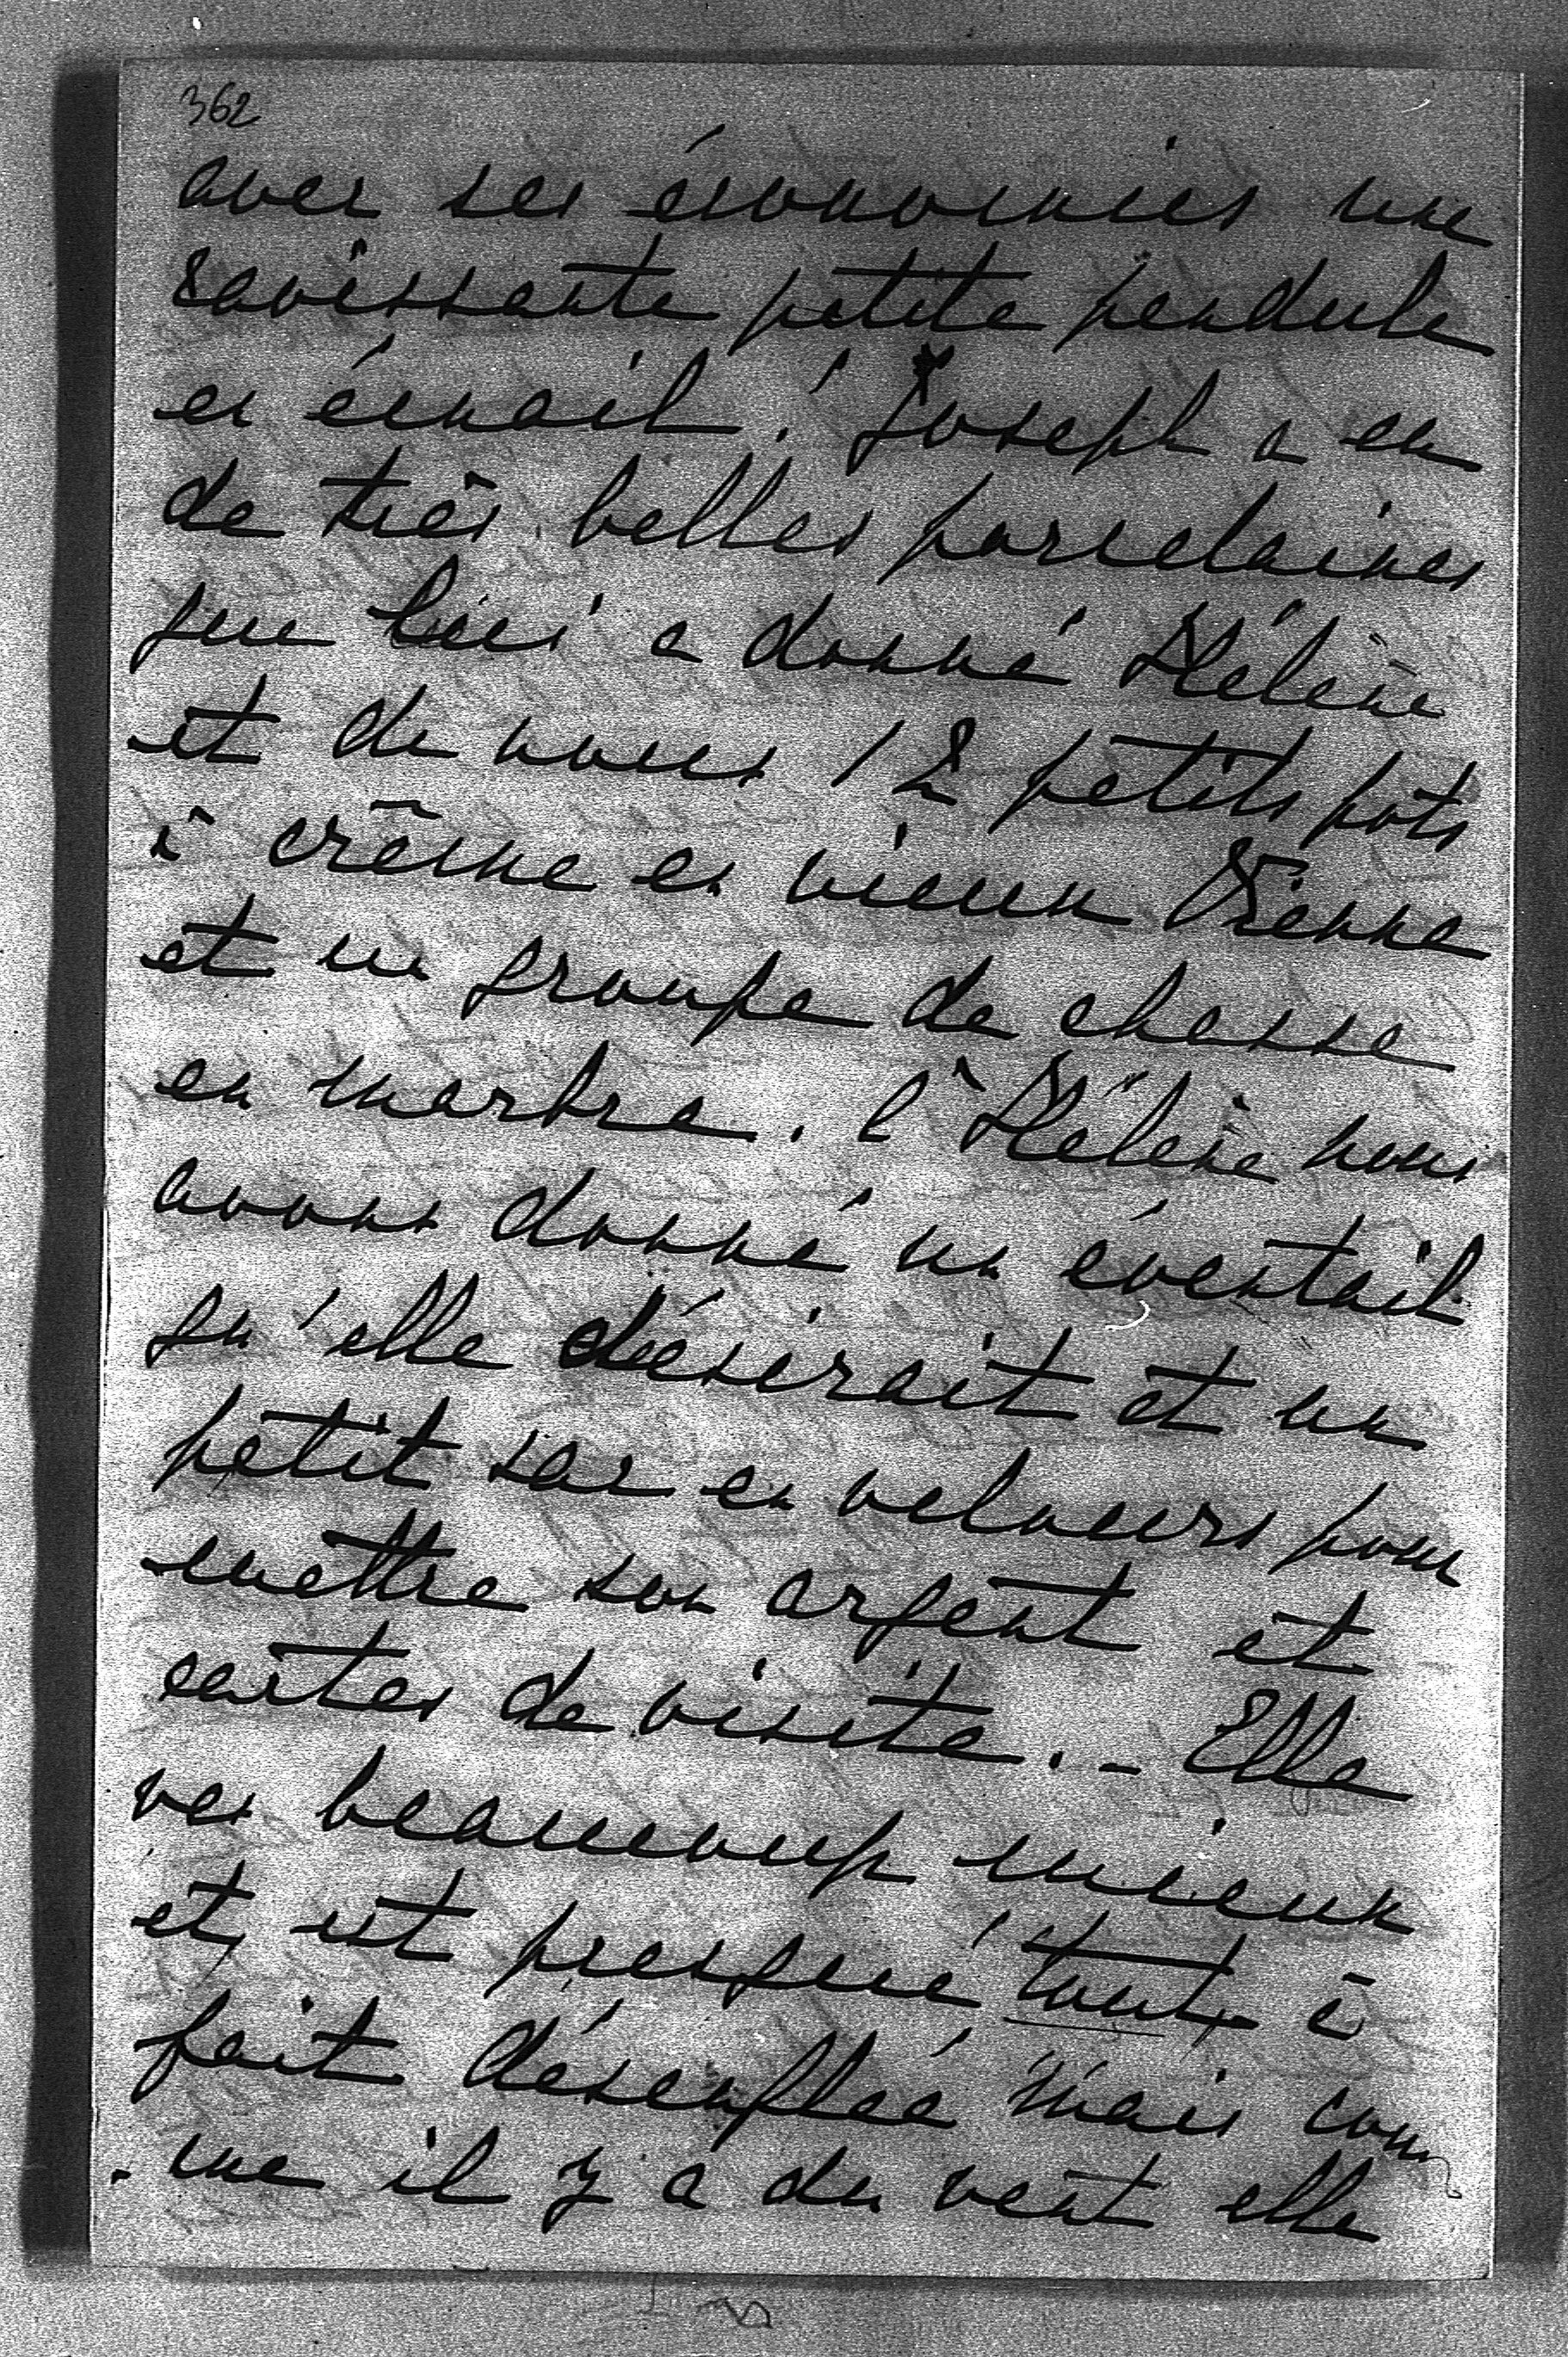 362
avec ses économies une
ravissante petite pendule
en émail. Joseph a eu
de très belles porcelaines
que lui a donné Hélène
et de nous 12 petits pots
à crême en vieux Vienne
et un groupe de chasse
en marbre. à Hélène nous
avons donné un éventail
qu'elle désirait et un
petit sac en velours pour
mettre son argent et
cartes de visite. - Elle
va beaucoup mieux
et est presque tout à
fait désenflée mais com
- me il y a du vent elle